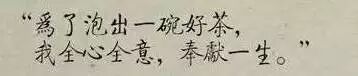 “爲了泡出一碗好茶，
我全心全意，奉獻一生。”